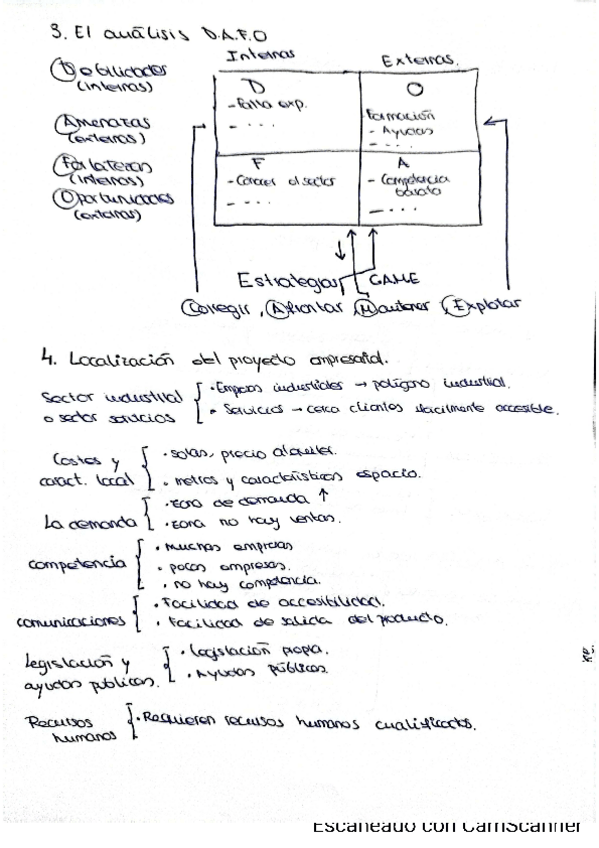 3. El análisis D.A.F.O
Internas
Externas.
Debilidades
(internas)
Amenazas
(externas)
Fortalezas
(internas)
Oportunidades
(externas)
D
- Falta exp.
- ...
O
Formación
- Ayudas
- ...
F
- Conocer el sector
- ...
A
- Competencia
barata
- ...
Estrategias CAME
Corregir, Afrontar, Mantener, Explotar
4. Localización del proyecto empresarial.
Sector industrial
o sector servicios
· Empresas industriales → polígono industrial.
· Servicios → cerca clientes fácilmente accesible.
Costes y
caract. local
· solas, precio alquiler.
· metros y características espacio.
La demanda
· zona de demanda ↑
· zona no hay ventas.
competencia
· muchas empresas
· pocas empresas.
· no hay competencia.
comunicaciones
· Facilidad de accesibilidad.
· Facilidad de salida del producto.
Legislación y
ayudas publicas.
· legislación propia.
· Ayudas públicas.
Recursos
humanos
· Requieren recursos humanos cualificados.
Escaneado con CamScanner